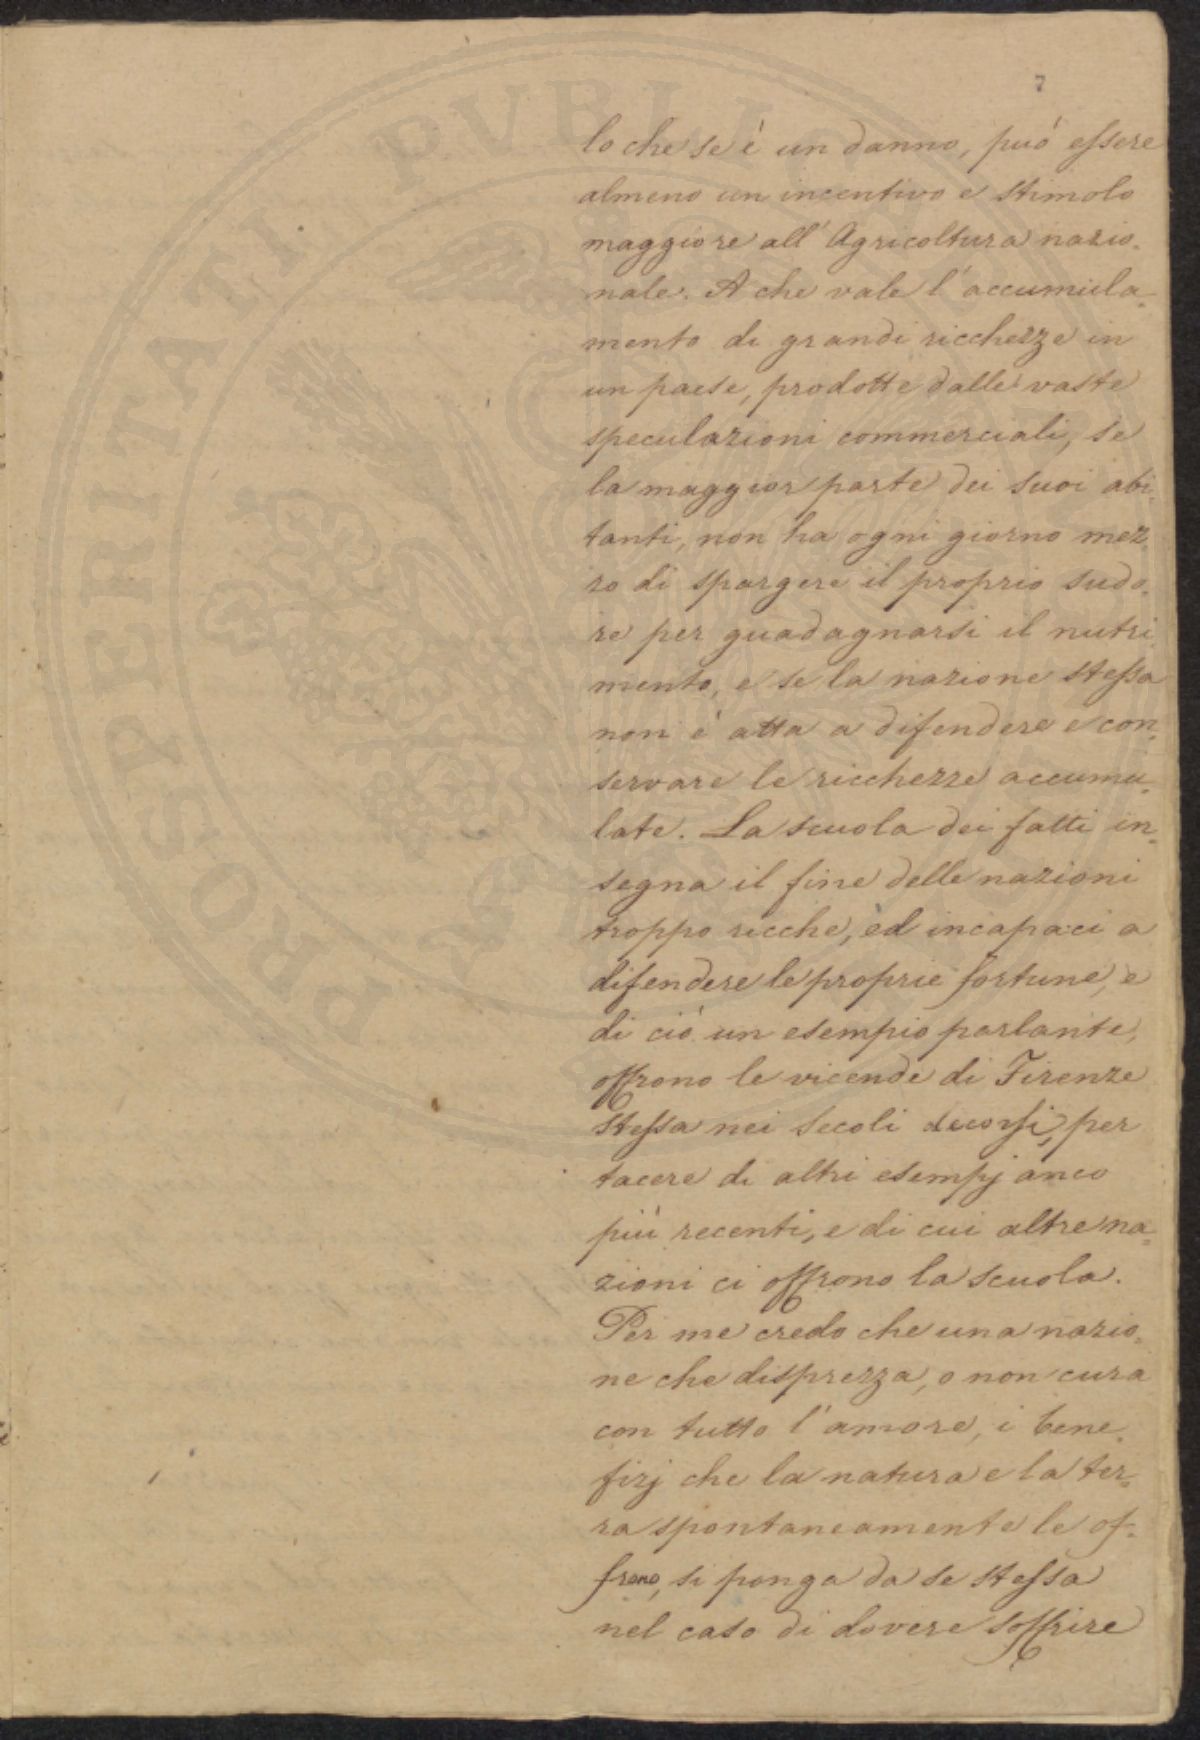 7
lo che se è un danno, può essere
almeno un incentivo e stimolo
maggiore all'Agricoltura nazio=
nale. A che vale l'accumula=
mento di grandi ricchezze in
un paese, prodotte dalle vaste
speculazioni commerciali, se
la maggior parte dei suoi abi=
tanti, non ha ogni giorno mez=
zo di spargere il proprio sudo=
re per guadagnarsi il nutri=
mento, e se la nazione stessa
non è atta a difendere e con=
servare le ricchezze accumu=
late. La scuola dei fatti in=
segna il fine delle nazioni
troppo ricche, ed incapaci a
difendere le proprie fortune, e
di ciò un esempio parlante,
offrono le vicende di Firenze
stessa nei secoli decorsi, per
tacere di altri esempj anco
più recenti, e di cui altre na=
zioni ci offrono la scuola.
Per me credo che una nazio=
ne che disprezza, o non cura
con tutto l'amore, i bene=
fizj che la natura e la ter=
ra spontaneamente le of=
frono, si ponga da se stessa
nel caso di dovere soffrire
PROSPERITATI PVBLI